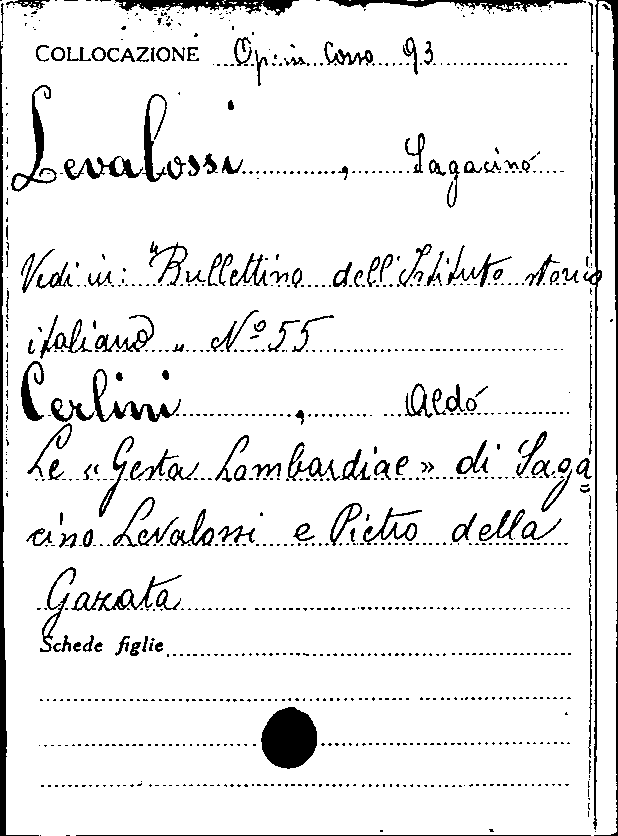 COLLOCAZIONE Op. in Corso 93
Levalossi, Sagacino
Vedi in: "Bullettino dell'Istituto storico
italiano „ Nº 55
Cerlini, Aldo
Le « Gesta Lombardiae » di Saga=
cino Levalossi e Pietro della
Gazata
Schede figlie